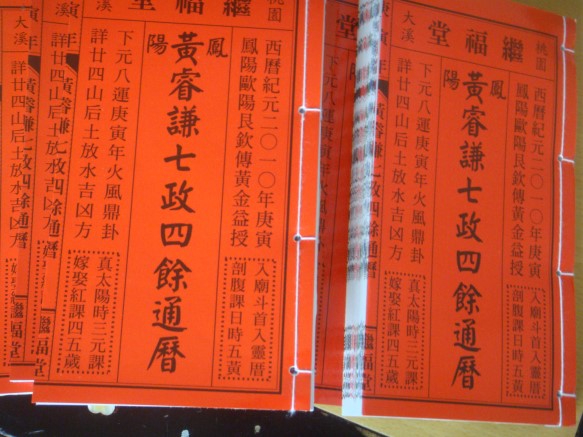 桃園
繼福堂
大溪
西曆紀元二〇一〇年庚寅
鳳陽歐陽艮欽傳黃金益授
入廟斗首入靈厝
剖腹課日時五黃
鳳陽
黃睿謙七政四餘通曆
下元八運庚寅年火風鼎卦
詳廿四山后土放水吉凶方
真太陽時三元課
嫁娶紅課四五歲
桃園
繼福堂
大溪
西曆紀元二〇一〇年庚寅
鳳陽歐陽艮欽傳黃金益授
入廟斗首入靈厝
剖腹課日時五黃
鳳陽
黃睿謙七政四餘通曆
下元八運庚寅年火風鼎卦
詳廿四山后土放水吉凶方
真太陽時三元課
嫁娶紅課四五歲
黃睿謙七政四餘通曆
繼福堂
大溪
詳廿四山后土放水吉凶方
嫁娶紅課四五歲